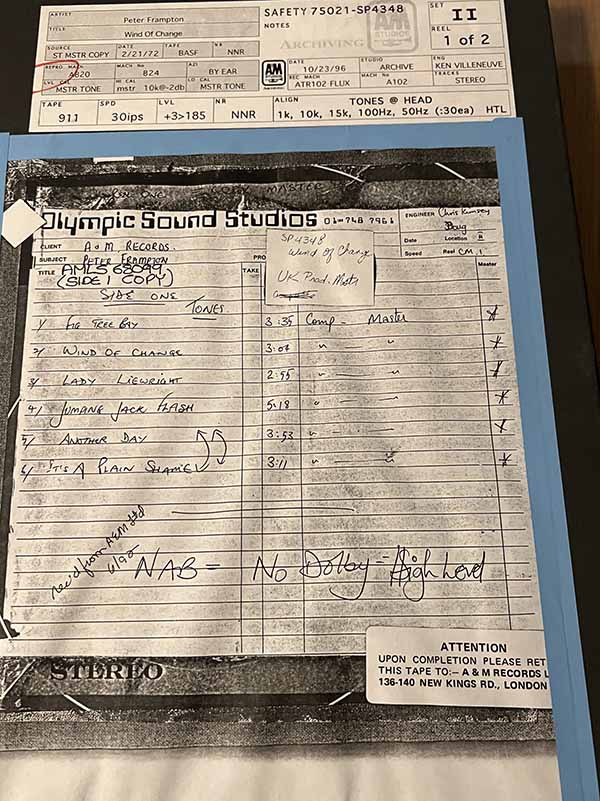 ARTIST Peter Frampton
TITLE Wind Of Change
SAFETY 75021-SP4348
NOTES
ARCHIVING
A&M STUDIOS
SET II
REEL 1 of 2
SOURCE ST MSTR COPY DATE 2/21/72 TAPE BASF NR NNR
REPRO MACH A820 MACH No 824 AZI BY EAR
LVL CAL MSTR TONE HI CAL mstr 10k@-2db LO CAL MSTR TONE
A&M DATE 10/23/96 STUDIO ARCHIVE ENG KEN VILLENEUVE
REC MACH ATR102 FLUX MACH No A102 TRACKS STEREO
TAPE 911 SPD 30ips LVL +3>185 NR NNR ALIGN TONES @ HEAD
1k, 10k, 15k, 100Hz, 50Hz (:30ea) HTL
MASTER
Olympic Sound Studios 01-748 7961
ENGINEER Chris Kimsey
Doug
CLIENT A & M RECORDS.
Date Location B
SUBJECT PETER FRAMPTON PRO
Speed Reel C.M.1
TITLE AMLS 68099 TAKE Master
(SIDE 1 COPY)
SP4348
Wind of Change
UK Prod. Mstr
SIDE ONE TONES
1/ FIG TREE BAY 3:35 Comp - Master *
2/ WIND OF CHANGE 3:04 " " *
3/ LADY LIEWRIGHT 2:55 " " *
4/ JUMPING JACK FLASH 5:18 " " *
5/ ANOTHER DAY 3:53 " " *
6/ IT'S A PLAIN SHAME 3:11 " " *
rec'd from A&M Ltd
6/92
NAB = No Dolby = High Level
STEREO
ATTENTION
UPON COMPLETION PLEASE RET
THIS TAPE TO:– A & M RECORDS L
136-140 NEW KINGS RD., LONDON